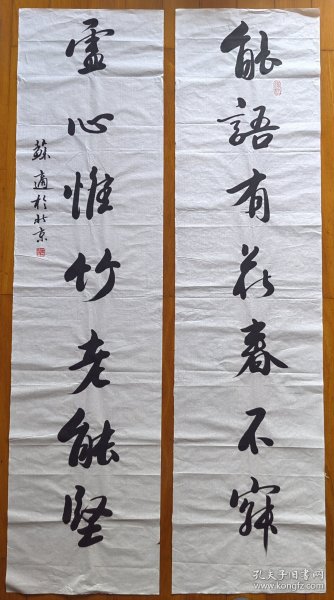 能語有花春不
虛心惟竹老能堅
蘇適於北京
孔夫子旧书网